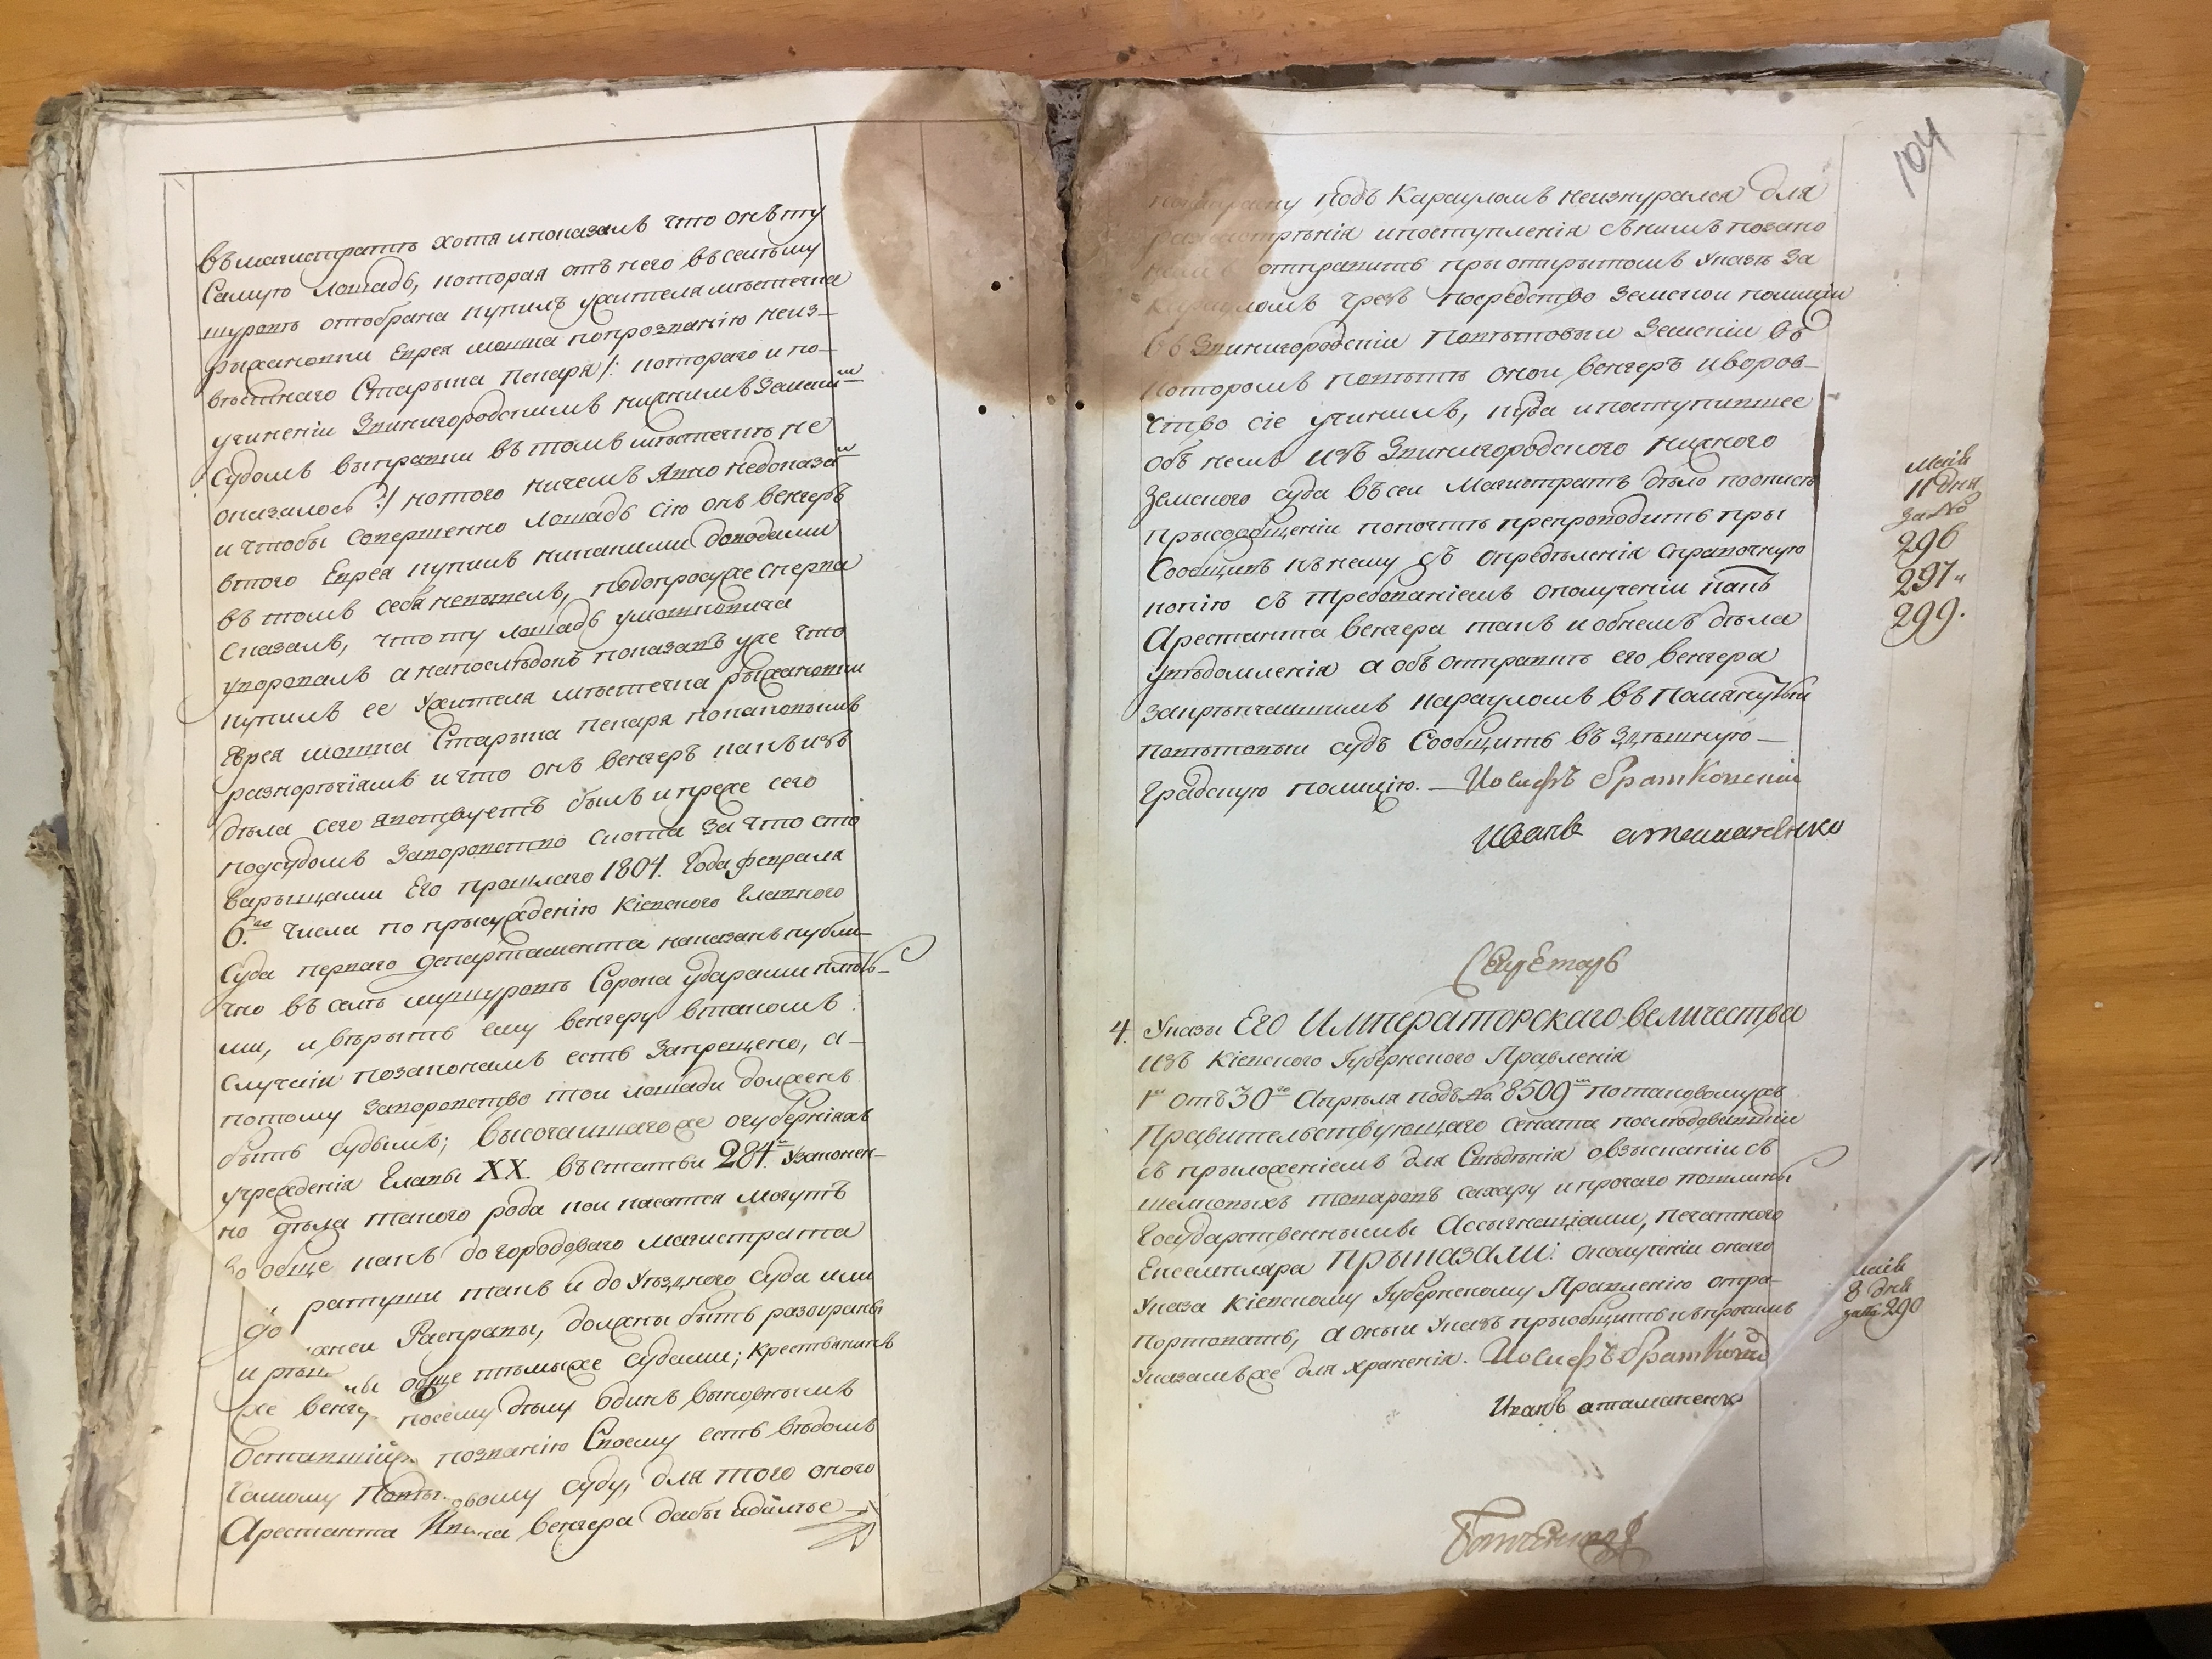 въмагистратѣ хотя ипоказалъ что онъ ту
Самую Лошадь, которая отъ него въсемъ му
щуратъ отобрана купилъ ужителя мѣстечка
рыжановки Еврея мошка попрозванію неиз-
вѣстнаго Старыша пекаря /: котораго и по-
учиненіи Звинигородскимъ нижнимъ Земским
Судомъ выправки въ томъ мѣстечкѣ не
оказалось :/ котого ничемъ Явно недоказал
и чтобы Совершенно Лошадь сію онъ венгеръ
втого Еврея купилъ никакими доводами
въ томъ себя
Сказалъ, что ту Лошадь
укоровалъ а напослѣдокъ показавъ уже что
купилъ ее Ужителя мѣстечка рыжановки
Еврея мошка Старыша пекаря потаковымъ
разнорѣчіямъ и что онъ венгеръ какъ изъ
дѣла сего явствуетъ былъ и преже сего
подсудомъ Заворовство скота За что сто
варыщами Его прошлаго 1804. Года февраля
6.го Числа по присуждению Кіевского Главного
Суда перваго Департамента наказанъ публи-
чно въ семъ Сорока ударами плетѣ-
ми, и вѣрыть ему венгеру втакомъ
Случаи позаконамъ есть Запрещено, а-
потому Заворовство тои лошади долженъ
быть Судымъ; Высочаишагоже огуберніяхъ
учрежденія Главы XX. въстатьи 284.и Узаконен-
но Дѣла такого рода кои касатся Могутъ
вообще какъ до городоваго Магистрата
До ратуши такъ и до Уѣздного Суда или
жнеи Расправы, должны быть разобраны
и рѣш обще тѣмыже Судами; Крестьянинъ
же венге посему дѣлу одинъ выновнымъ
Оставшийся позванію Своему есть вѣдомъ
Самому Повѣтовому Суду, для того оного
Арестанта Ивана венгера дабы идалѣе
104
подъ Карауломъ неизнурался для
разсмотрѣнія ипоступленія съ нимъ позако
намъ отправить при открытомъ Указѣ За
Карауломъ чрезъ посредство Земскои полиции
въ Звинигородскіи Повѣтовыи Земскіи въ
которомъ повѣтѣ онои венгеръ иворов-
ство сіе учинилъ, куда ипоступившее
объ немъ изъ Звинигородского нижного
Земского суда въсеи Магистратъ дѣло поописи
прысообщеніи попочтѣ препроводить пры
Сообщивъ къ нему съ опредѣленія Справочную
копію съ требованіемъ ополученіи какъ
Арестанта венгера такъ и обнемъ дѣла
увѣдомленія а объ отправкѣ его венгера
Запрѣпчаишимъ карауломъ въ Помянутыи
повѣтовыи судъ Сообщить въ Здѣшнюю-
Градскую полицію. - Иосифъ Братковскій
Иванъ атаманенко
Маія
11 дня
За №
296
297
299.
Секретарь
4. Указы Его Императорскаго величества
изъ Кіевского Губернского Правленія
1й отъ 30го Апрѣля подъ № 8509м потаковомужъ
Правительствующаго Сената послѣдовавшій
съ прыложеніемъ для Свѣдѣнія овзысканіи съ
шелковыхъ товаровъ сахару и прочаго пошлины
Государственнымы Ассыгнаціами, печатного
Екземпляра Прыказали: ополученіи оного
Указа Кіевскому Губернскому Правленію отра-
портовать, а оныи Указъ прыобщить къпрочимъ
Указамъже для храненія. Иосифъ Братковскій
Иванъ атаманенко
маія
8 дня
за № 290